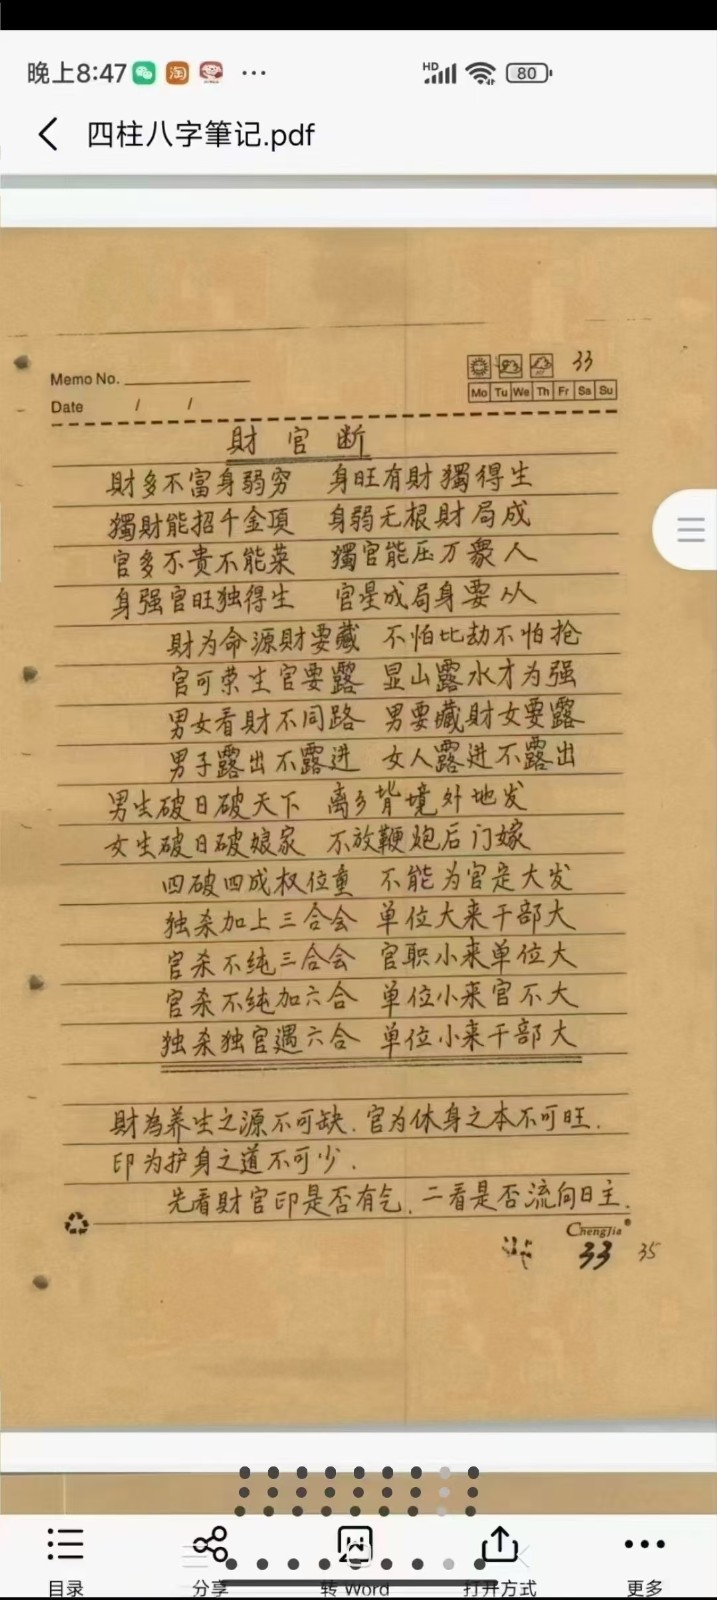 晚上8:47
HD
80
四柱八字筆记.pdf
33
Memo No.
Mo Tu We Th Fr Sa Su
Date / /
財官断
財多不富身弱穷 身旺有財獨得生
獨財能招千金項 身弱无根財局成
官多不贵不能荣 獨官能压万衆人
身强官旺独得生 官星成局身要从
財为命源財要藏 不怕比劫不怕抢
官可荣生官要露 显山露水才为强
男女看財不同路 男要藏財女要露
男子露出不露进 女人露进不露出
男生破日破天下 离乡背境外地发
女生破日破娘家 不放鞭炮后门嫁
四破四成权位重 不能为官定大发
独杀加上三合会 单位大来干部大
官杀不纯三合会 官职小来单位大
官杀不纯加六合 单位小来官不大
独杀独官遇六合 单位小来干部大
財為养生之源不可缺.官为休身之本不可旺.
印为护身之道不可少.
先看財官印是否有乞.二看是否流向日主.
ChengJia
33 35
目录
分享
转 Word
打开方式
更多